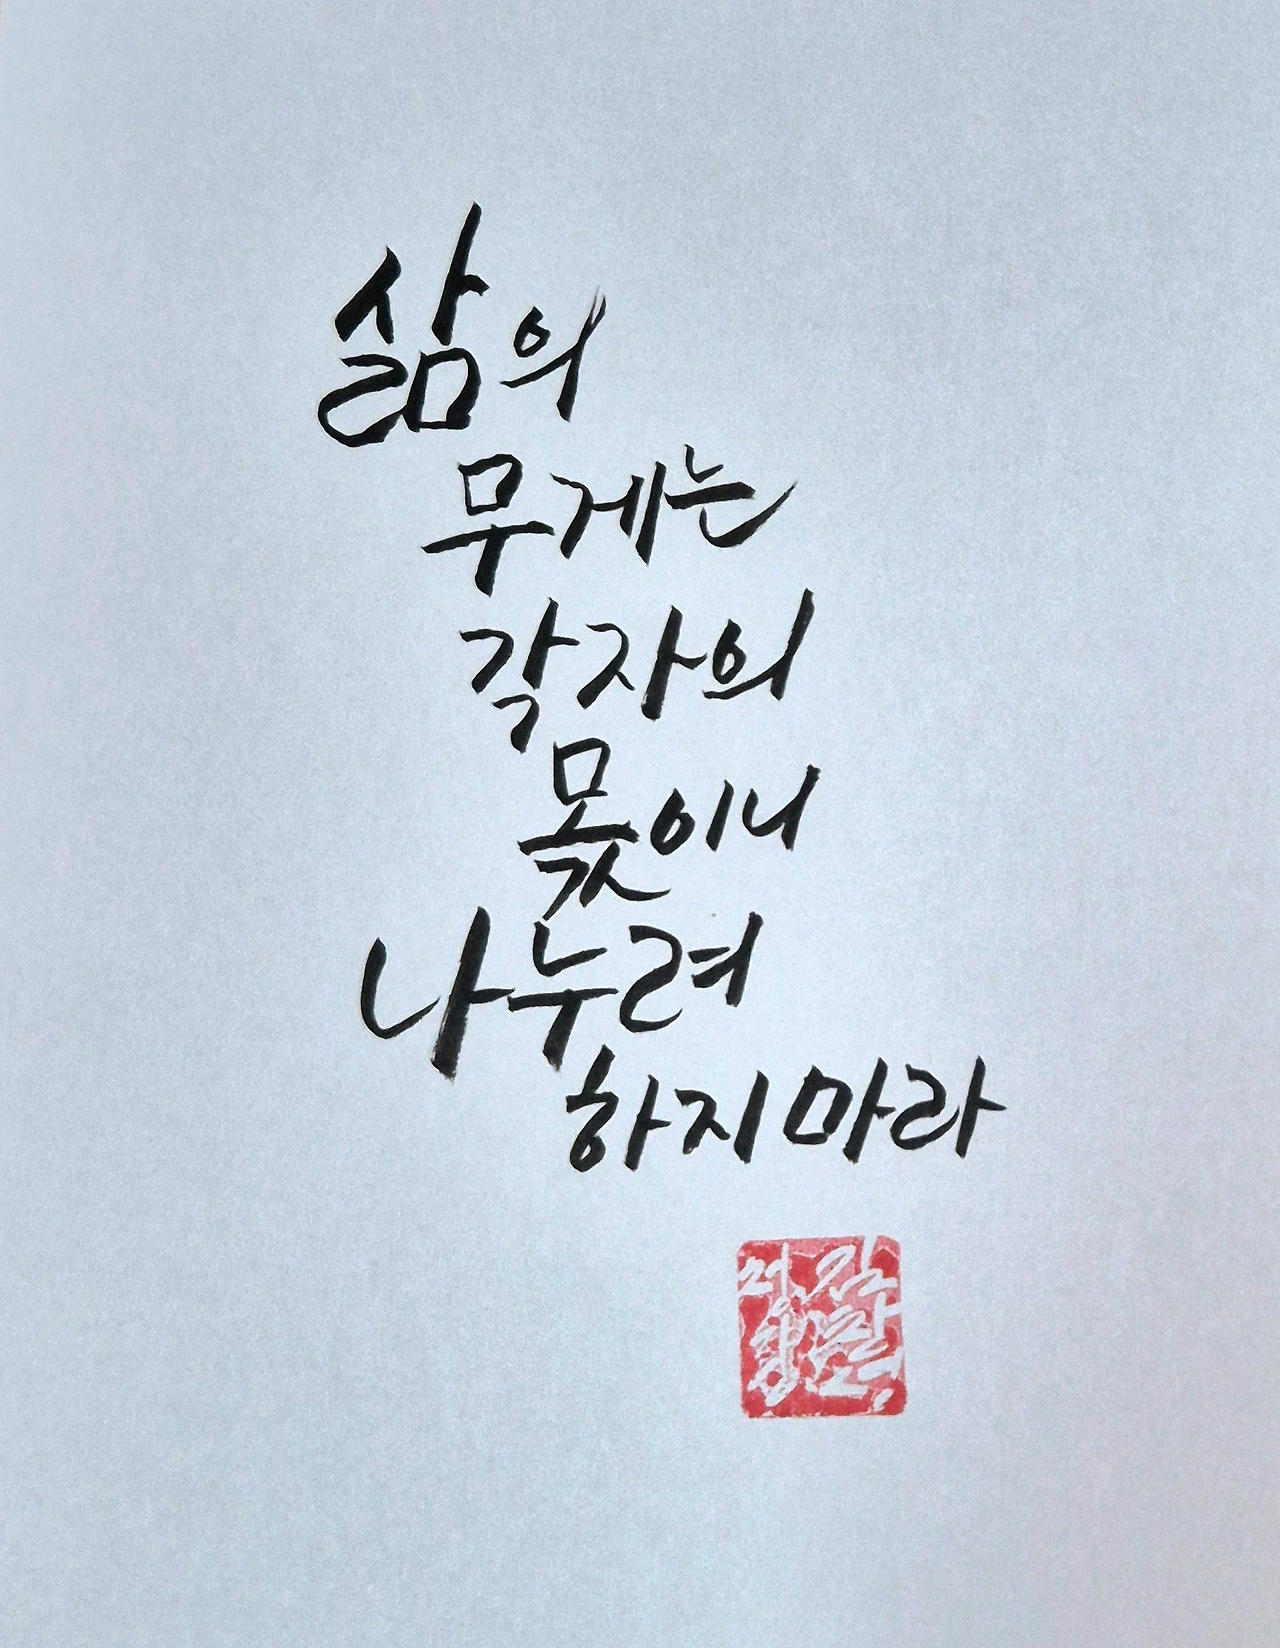 삶의
무게는
각자의
몫이니
나누려
하지 마라